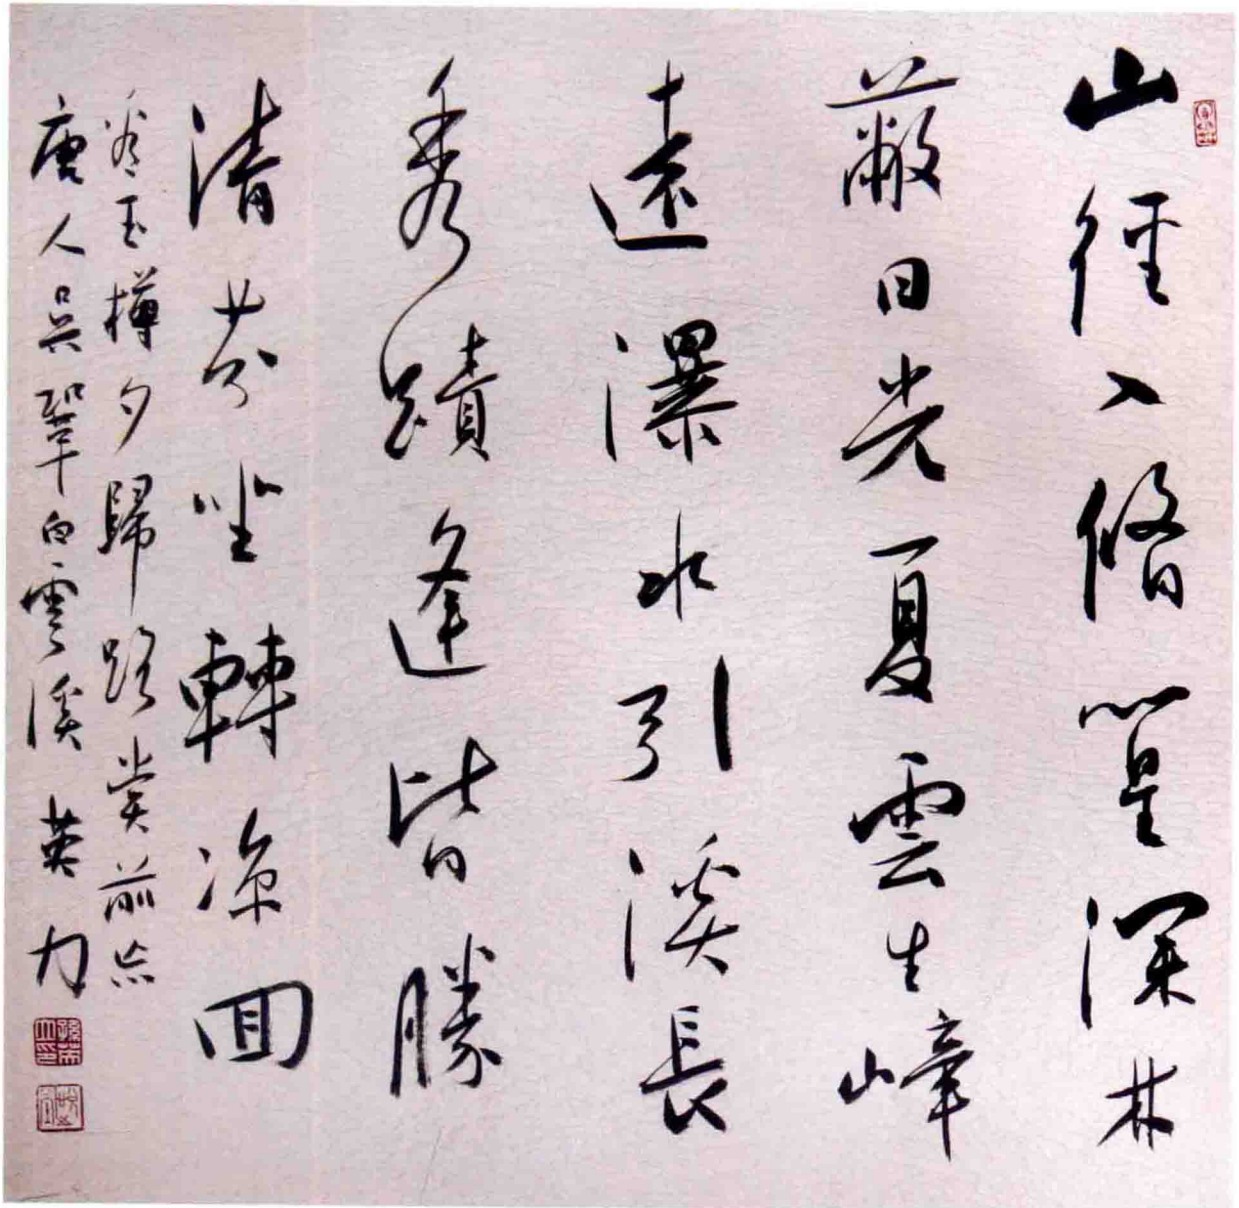 山徑入脩篁深林
蔽日光夏雲生嶂
遠瀑水引溪長
秀蹟逢皆勝
清芬坐轉涼回
看玉樽夕歸路賞前忘
唐人吳鞏白雲溪 英力